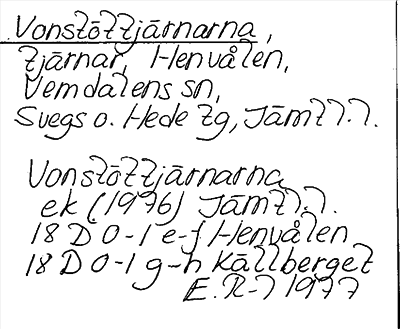 Vonstöttjärnarna,
tjärnar, Henvålen,
Vemdalens sn,
Svegs o. Hede tg, Jämtl.l.
Vonstöttjärnarna
ek (1976) Jämtl.l.
18 D 0-1 e-f Henvålen
18 D 0-1 g-h Källberget
E. R-l 1977